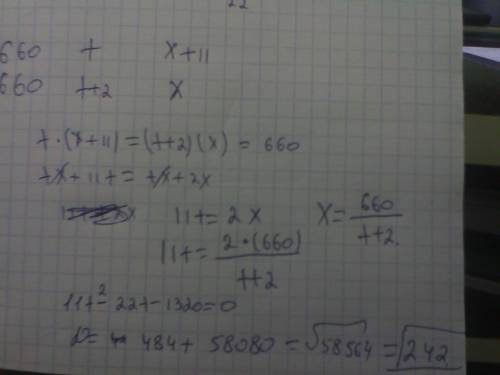 22
660 t x+11
660 t+2 x
t·(x+11)=(t+2)(x) = 660
tx+11t= tx+2x
11t= 2x x= 660/t+2.
11t= 2·(660)/t+2
11t²- 22t-1320=0
D= 484+ 58080 = √58564 = 242